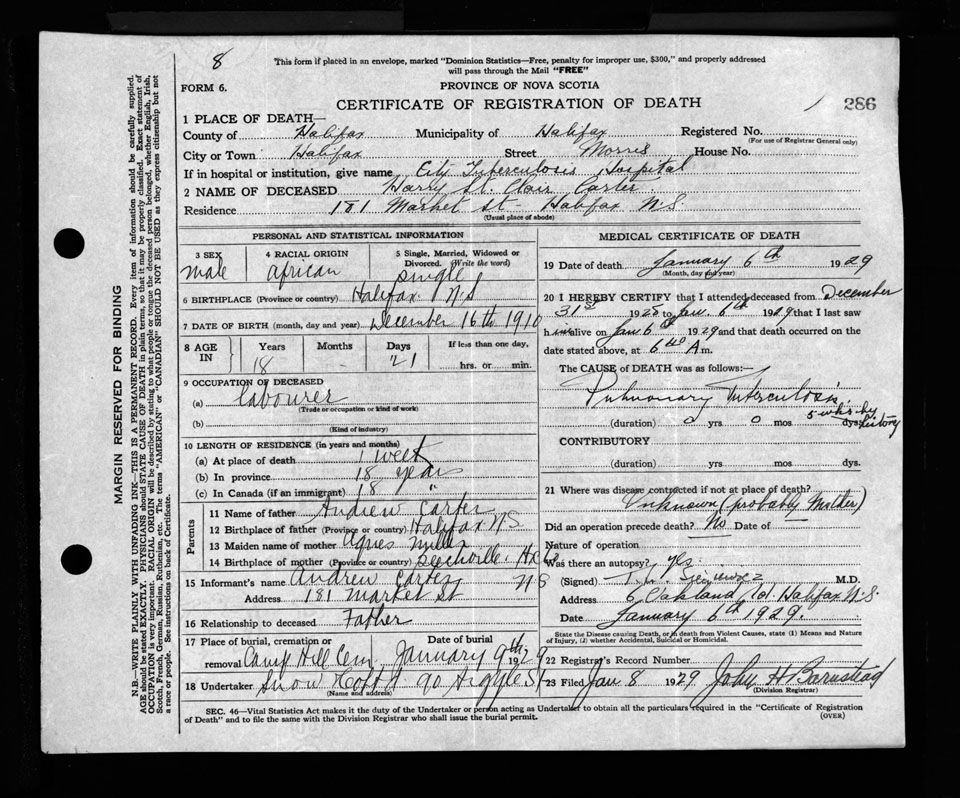 8
This form if placed in an envelope, marked "Dominion Statistics—Free, penalty for improper use, $300," and properly addressed
will pass through the Mail "FREE"
FORM 6.
PROVINCE OF NOVA SCOTIA
CERTIFICATE OF REGISTRATION OF DEATH
286
1 PLACE OF DEATH—
County of Halifax Municipality of Halifax Registered No.
(For use of Registrar General only)
City or Town Halifax Street Morris House No.
If in hospital or institution, give name City Tuberculosis Hospital
2 NAME OF DECEASED Harry St. Clair Carter
Residence 181 Market St - Halifax N.S.
(Usual place of abode)
PERSONAL AND STATISTICAL INFORMATION
3 SEX male
4 RACIAL ORIGIN african
5 Single, Married, Widowed or
Divorced. (Write the word)
single
6 BIRTHPLACE (Province or country) Halifax N.S
7 DATE OF BIRTH (month, day and year) December 16th 1910
8 AGE IN
Years Months Days If less than one day,
18 - 21 hrs. or min.
9 OCCUPATION OF DECEASED
(a) labourer
(Trade or occupation or kind of work)
(b)
(Kind of industry)
10 LENGTH OF RESIDENCE (in years and months)
(a) At place of death 1 week
(b) In province 18 years
(c) In Canada (if an immigrant) 18 "
Parents
11 Name of father Andrew Carter
12 Birthplace of father (Province or country) Halifax N.S
13 Maiden name of mother Agnes
14 Birthplace of mother (Province or country)
N S
15 Informant's name Andrew Carter
Address 181 Market St
16 Relationship to deceased Father
17 Place of burial, cremation or Date of burial
removal Camp Hill Cem, January 9th 1929
18 Undertaker Snow & Co Ltd 90 Argyle St
(Name and address)
MEDICAL CERTIFICATE OF DEATH
19 Date of death January 6th 1929
(Month, day and year)
20 I HEREBY CERTIFY that I attended deceased from December
31st 1928 to Jan. 6th 1929 that I last saw
h im alive on Jan 6th 1929 and that death occurred on the
date stated above, at 6 A m.
The CAUSE OF DEATH was as follows:—
Pulmonary Tuberculosis
5 wks by history
(duration) 0 yrs 0 mos dys.
CONTRIBUTORY
(duration) yrs. mos dys.
21 Where was disease contracted if not at place of death?
Unknown (probably Mother)
Did an operation precede death? No Date of —
Nature of operation
Was there an autopsy? yes
(Signed) M.D.
Address 6 Oakland Halifax N.S.
Date January 6th 1929.
State the Disease causing Death, or in death from Violent Causes, state (1) Means and Nature
of Injury, (2) whether Accidental, Suicidal or Homicidal.
22 Registrar's Record Number
23 Filed Jan 8 1929 John H Barnstead
(Division Registrar)
SEC. 46—Vital Statistics Act makes it the duty of the Undertaker or person acting as Undertaker to obtain all the particulars required in the "Certificate of Registration
of Death" and to file the same with the Division Registrar who shall issue the burial permit.
(OVER)
MARGIN RESERVED FOR BINDING
N.B.—WRITE PLAINLY WITH UNFADING INK—THIS IS A PERMANENT RECORD. Every item of information should be carefully supplied.
AGE should be stated EXACTLY. PHYSICIANS should STATE CAUSE OF DEATH in plain terms, so that it may be properly classified. Exact statement of
OCCUPATION is very important. RACIAL ORIGIN will be described by stating to what people or tongue the deceased person belonged, whether English, Irish,
Scotch, French, German, Russian, Ruthenian, etc. The terms "AMERICAN" or "CANADIAN" SHOULD NOT BE USED as they express citizenship but not
a race or people. See instructions on back of Certificate.